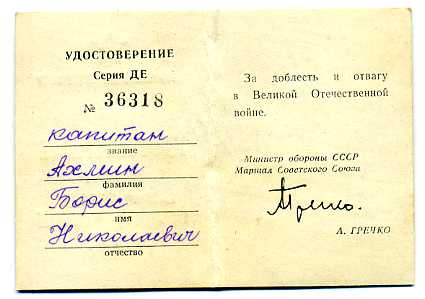 УДОСТОВЕРЕНИЕ
Серия ДЕ
№ 36318
капитан
звание
Ахмин
фамилия
Борис
имя
Николаевич
отчество
За доблесть и отвагу
в Великой Отечественной
войне.
Министр обороны СССР
Маршал Советского Союза
Гречко.
А. ГРЕЧКО